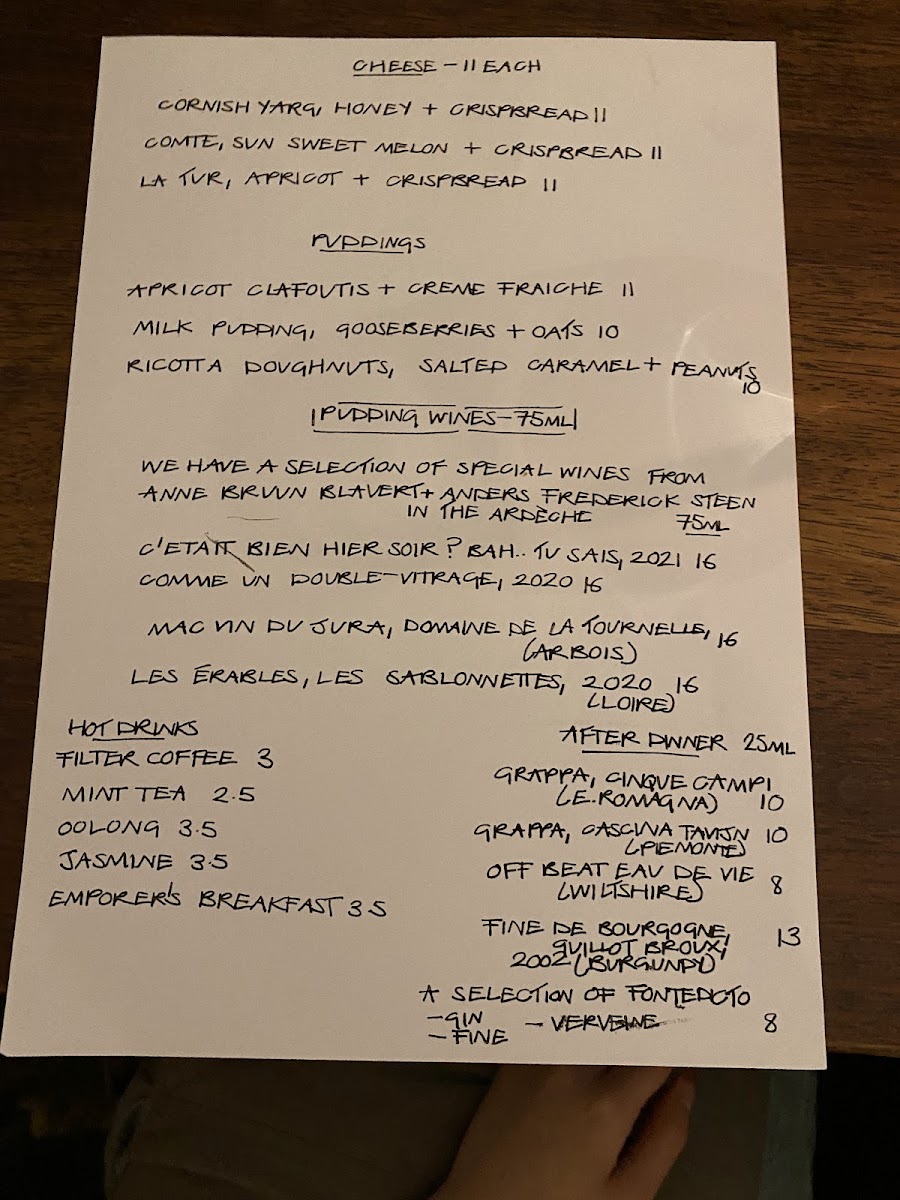 CHEESE - 11 EACH
CORNISH YARG, HONEY + CRISPBREAD 11
COMTE, SUN SWEET MELON + CRISPBREAD 11
LA TUR, APRICOT + CRISPBREAD 11
PUDDINGS
APRICOT CLAFOUTIS + CREME FRAICHE 11
MILK PUDDING, GOOSEBERRIES + OATS 10
RICOTTA DOUGHNUTS, SALTED CARAMEL + PEANUTS
10
PUDDING WINES - 75ML
WE HAVE A SELECTION OF SPECIAL WINES FROM
ANNE BRUUN BLAVERT + ANDERS FREDERICK STEEN
IN THE ARDÈCHE 75ML
C'ETAIT BIEN HIER SOIR? BAH.. TU SAIS, 2021 16
COMME UN DOUBLE-VITRAGE, 2020 16
MAC VIN DU JURA, DOMAINE DE LA TOURNELLE, 16
(ARBOIS)
LES ÉRABLES, LES SABLONNETTES, 2020 16
(LOIRE)
HOT DRINKS
FILTER COFFEE 3
MINT TEA 2.5
OOLONG 3.5
JASMINE 3.5
EMPORER'S BREAKFAST 3.5
AFTER DINNER 25ML
GRAPPA, CINQUE CAMPI
(E. ROMAGNA) 10
GRAPPA, CASCINA TAVIJN 10
(PIEMONTE)
OFF BEAT EAU DE VIE
(WILTSHIRE) 8
FINE DE BOURGOGNE, 13
GUILLOT BROUX,
2002 (BURGUNDY)
A SELECTION OF FONTEDICTO
- GIN - VERVEINE 8
- FINE